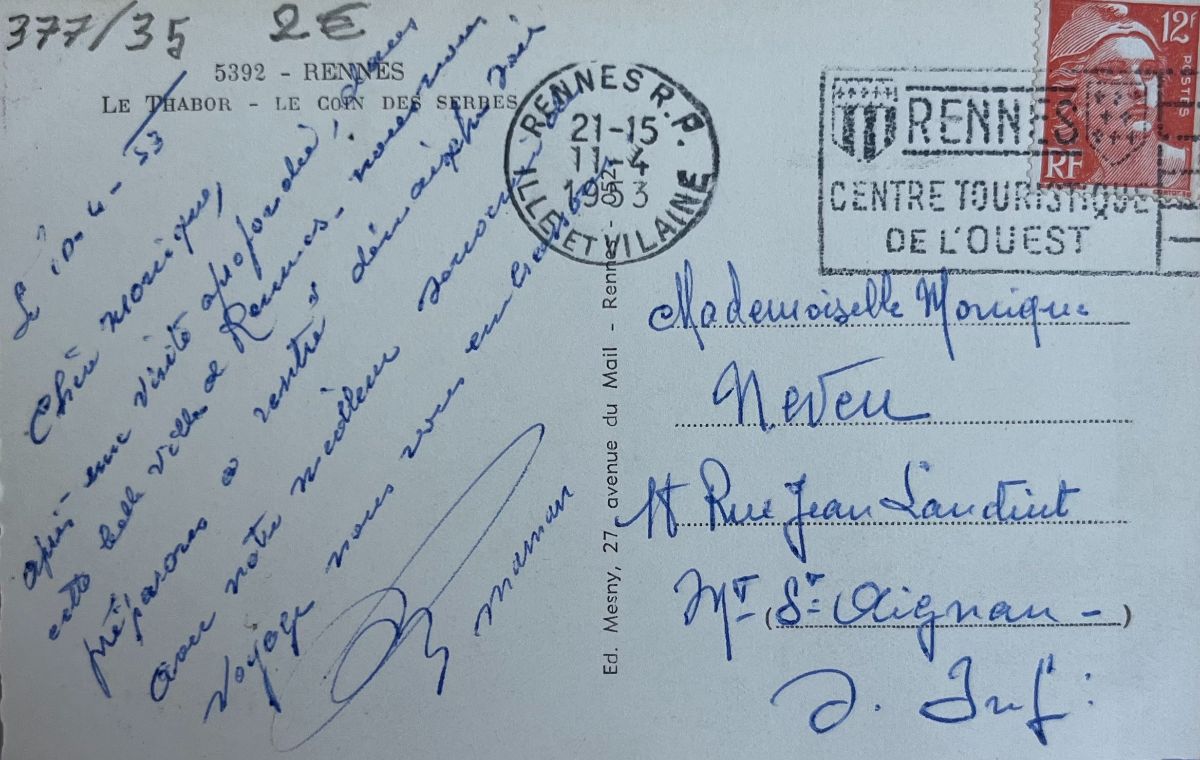 377/35 2€
5392 - RENNES
LE THABOR - LE COIN DES SERRES
RENNES R.P.
21-15
11-4
1953
ILLE ET VILAINE
RENNES
CENTRE TOURISTIQUE
DE L'OUEST
12F
POSTES
RF
Le 10-4-53
Chère Monique,
après une visite approfondie dans
cette belle ville de Rennes - nous nous
préparons a rentrer
avec notre meilleur souvenir de
voyage nous vous embrassons
Maman
Ed. Mesny, 27, avenue du Mail - Rennes -
Mademoiselle Monique
Neveu
Rue Jean
Mt (St Aignan -)
S. Inf: